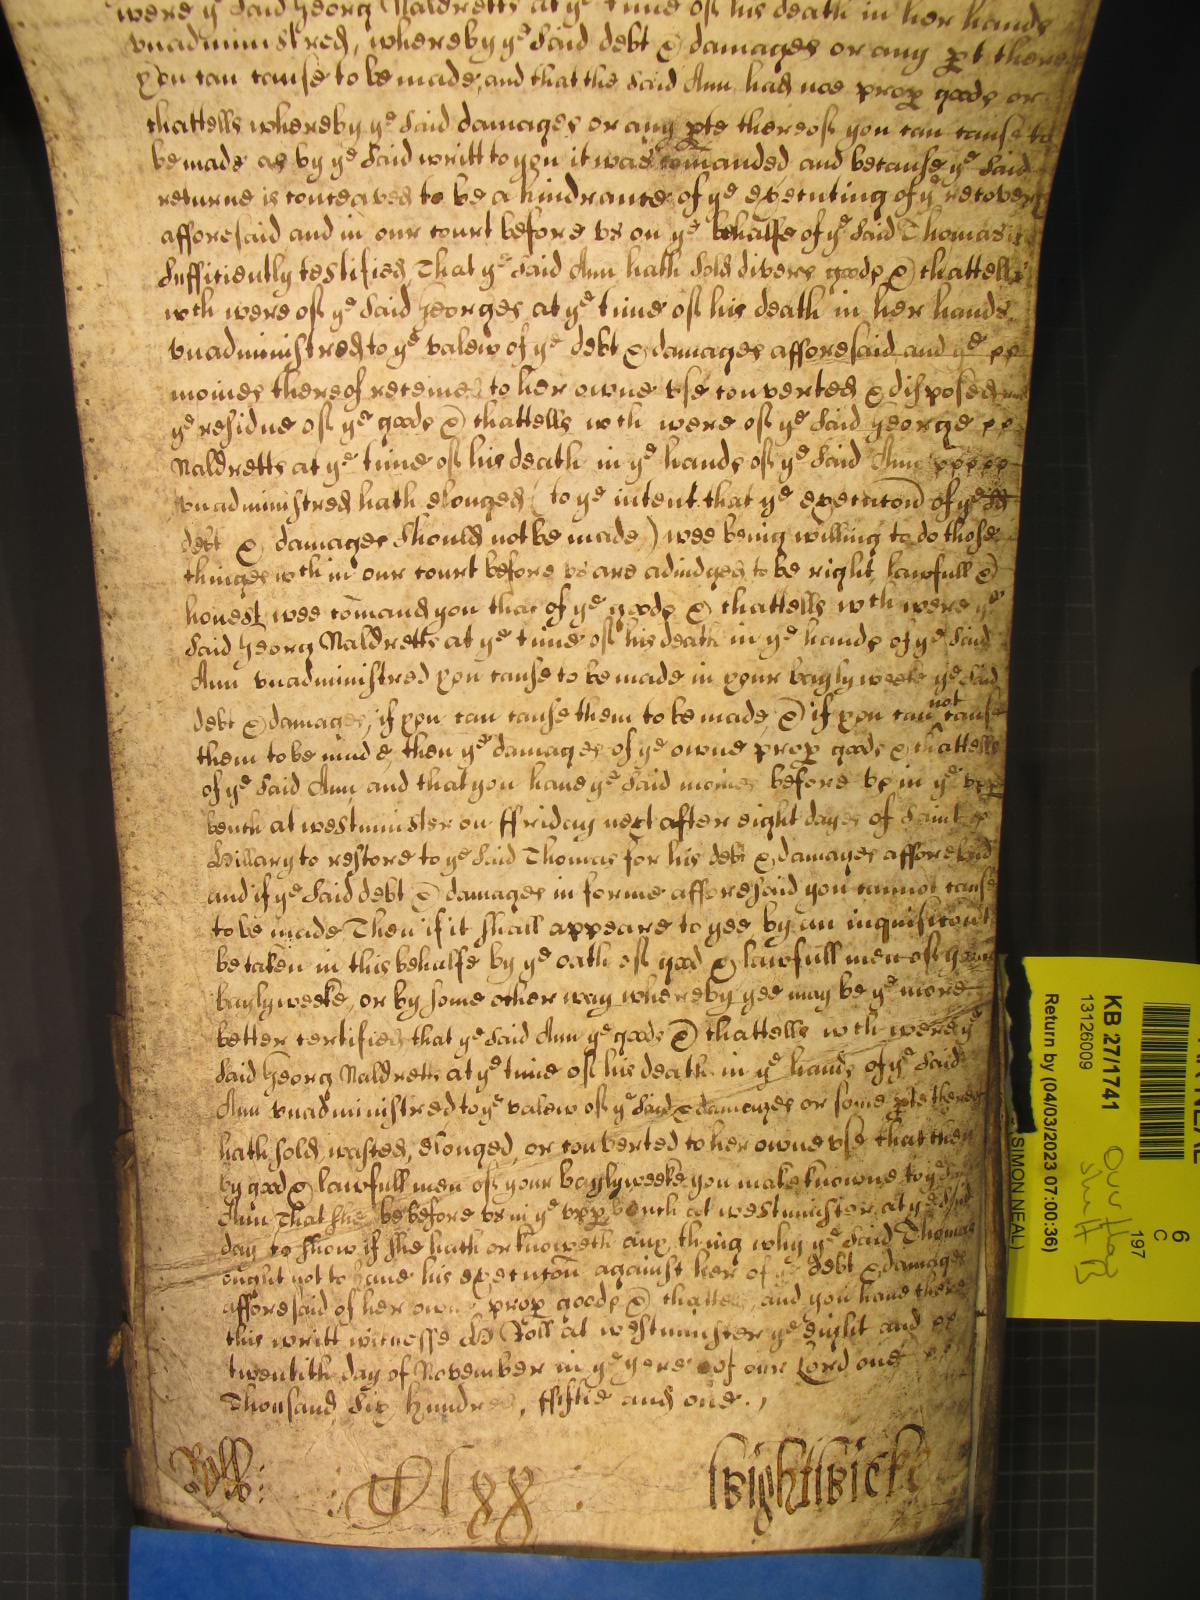 were ye said Georg Naldretts at ye time off his death in her hands
vnadministred, whereby ye said debt & damages or any pt there
you can cause to be made, and that the said Ann had noe prop goods or
chattells whereby ye said damages or any pte thereoff you can cause to
be made as by ye said writt to you it was comanded and because ye said
returne is conceaved to be a hindrance of ye executing of ye recovery
afforesaid and in our court before vs on ye behalfe of ye said Thomas is
sufficiently testified, That ye said Ann hath sold divers goods & chattells
wch were off ye said Georges at ye time off his death in her hands
vnadministred to ye valew of ye debt & damages afforesaid and ye
monies thereof receined to her owne vse converted & disposed
ye residue off ye goods & chattells wch were off ye said George
Naldretts at ye time off his death in ye hands off ye said Ann
vnadministred hath elonged ( to ye intent that ye execucon of ye sd
debt & damages should not be made ) wee being willing to do those
thinges wch in our court before vs are adiudged to be right lawfull &
honest wee comand you that of ye goods & chattells wch were ye
said Georg Naldretts at ye time off his death in ye hands of ye said
Ann vnadministred you cause to be made in your baylyweeke ye said
debt & damages, if you can cause them to be made, & if you can not cause
them to be made, then ye damages of ye owne prop goods & chattells
of ye said Ann, and that you haue ye said monies before vs in ye vpp
bench at westminster on ffriday next after eight dayes of Saint
Hillary to restore to ye said Thomas for his debt & damages afforesaid
and if ye said debt & damages in forme afforesaid you cannot cause
to be made Then if it shall appeare to yee by an inquisicon t
be taken in this behalfe by ye oath off good & lawfull men off your
baylyweeke, or by some other way whereby yee may be ye more
better certified that ye said Ann ye goods & chattells wch were ye
said Georg Naldretts at ye time off his death in ye hands of ye said
Ann vnadministred to ye valew off ye said & damages or some pte thereof
hath sold, wasted, elonged, or converted to her owne vse that then
by good & lawfull men off your baylyweeke you make knowne to ye said
Ann That she be before vs in ye vpp bench at westminster at ye said
day to show if she hath or knoweth any thing why ye said Thomas
ought not to haue his execucon against her of ye debt & damages
afforesaid of her owne prop goods & chattells, and you haue there
this writt witnesse H Roll at westminster ye eight and
twentith day of November in ye yere of our Lord one
Thousand six hundred, ffiftie and one.,
Roll:
Wightwicke
KB 27/1741
13126009
Return by (04/03/2023 07:00:36)
(SIMON NEAL)
6
C
197